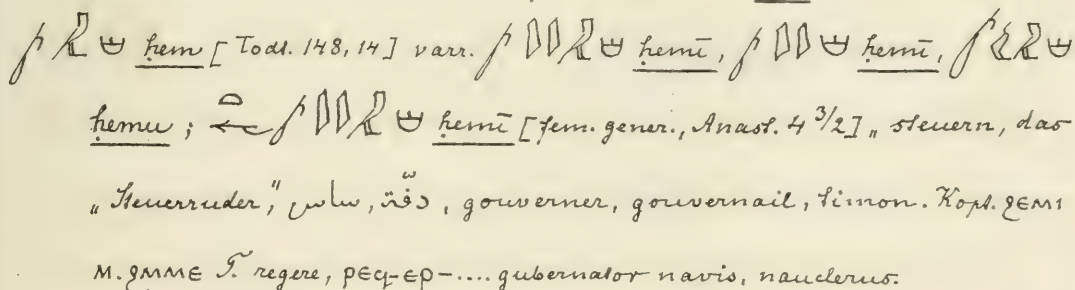 ḥem [Todt. 148, 14] varr. ḥemī, ḥemī,
ḥemu; ḥemī [fem. gener., Anast. 4 3/2] „steuern, das
„Steuerruder", ساس, دفّة, gouverner, gouvernail, timon. Kopt. ϩⲉⲙⲓ
M. ϩⲙⲙⲉ T. regere, ⲣⲉϥ-ⲉⲣ-.... gubernator navis, nauclerus.